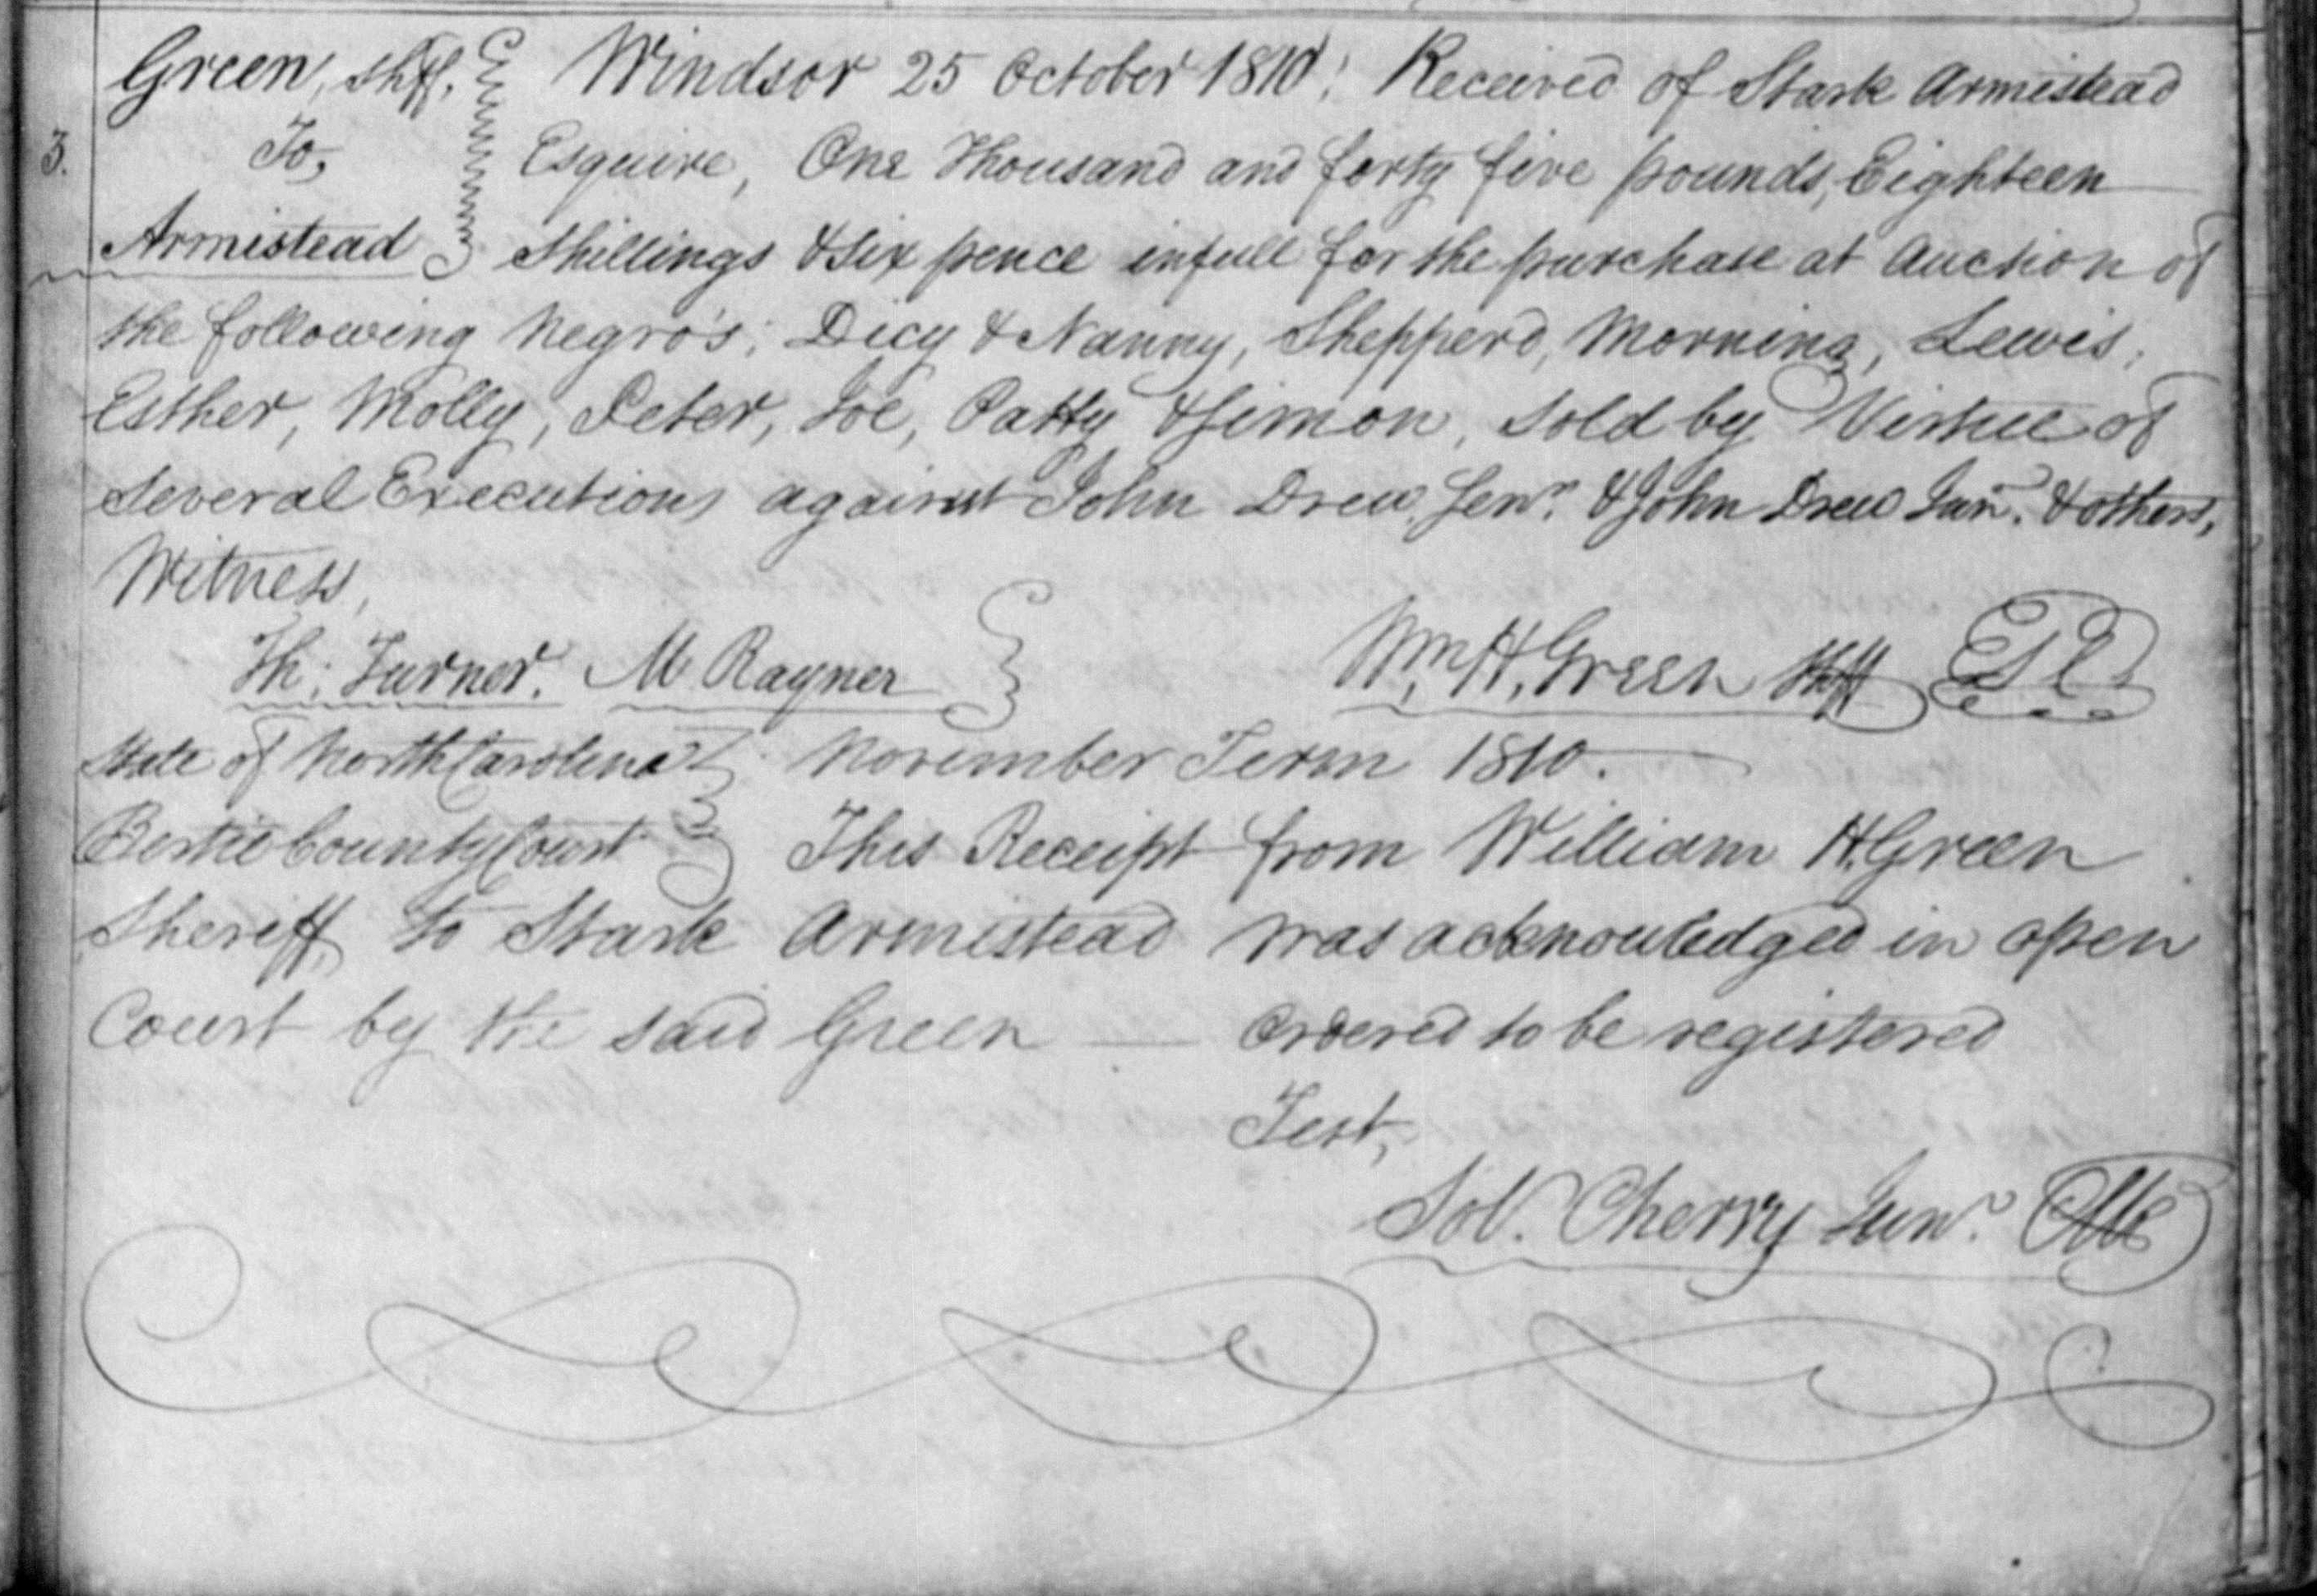 Green, Shff, Windsor 25 October 1810; Received of Stark Armistead
3. To, Esquire, One Thousand and forty five pounds, Eighteen
Armistead Shillings & Six pence infull for the purchase at Auction of
the following Negro's; Dicy & Nanny, Shepperd, Morning, Lewis,
Esther, Molly, Peter, Joe, Patty & Simon, Sold by Virtue of
Several Executions against John Drew, Senr. & John Drew Junr. & others,
Witness,
Th: Turner. M Rayner Wm, H, Green Shff
State of North Carolina November Term 1810.
Bertie County Court This Receipt from William H. Green
Sheriff, to Stark Armistead was acknowledged in open
Court by the said Green — Ordered to be registered
Test,
Sol. Cherry Junr. Clk